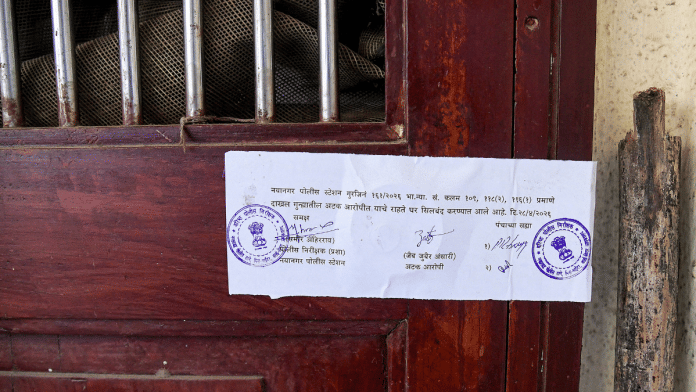 नयानगर पोलीस स्टेशन गुरजिनं १६१/२०२६ भा.न्या. सं. कलम १०९, ११८(२), १९६(१) प्रमाणे
दाखल गुन्ह्यातील अटक आरोपीत याचे राहते घर सिलबंद करण्यात आले आहे. दि.२८/४/२०२६
समक्ष
पंचाच्या सह्या
अहिरराव)
पोलीस निरीक्षक (प्रशा)
नयानगर पोलीस स्टेशन
(जैब जुबेर अंसारी)
अटक आरोपी
१)
२)